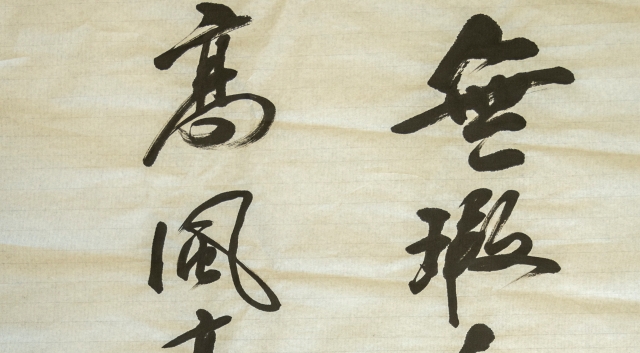 無瑕
高風